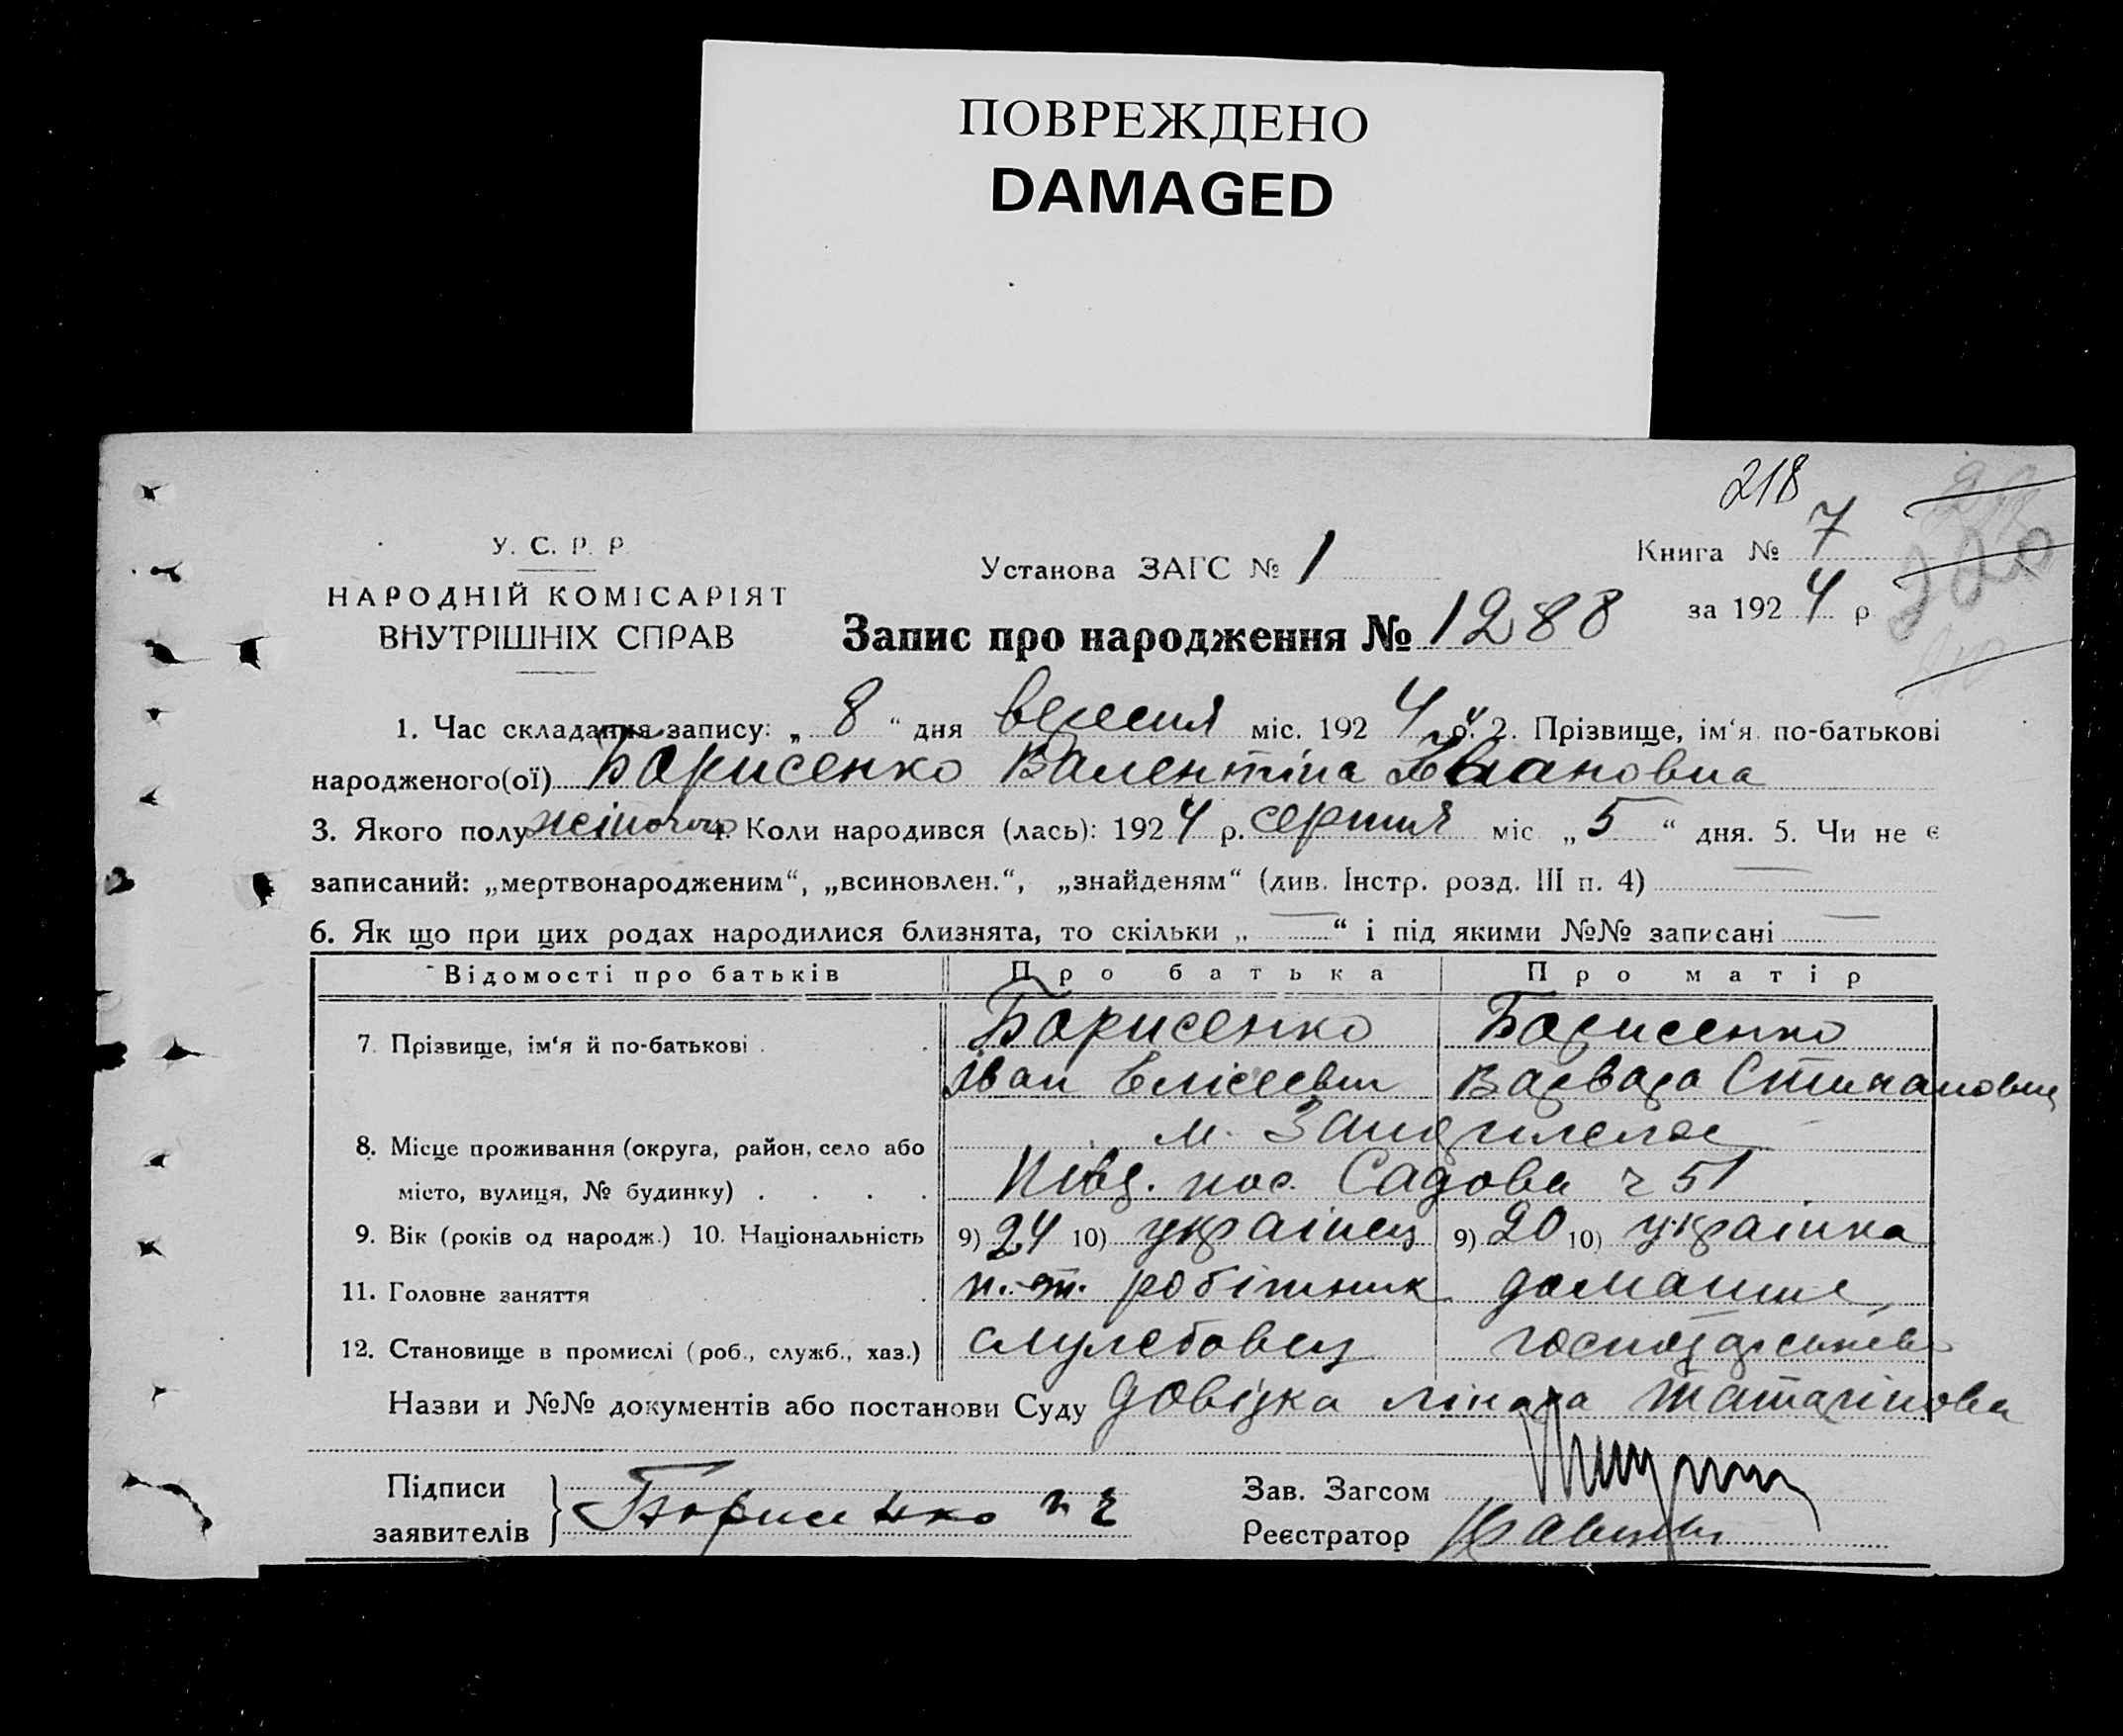 ПОВРЕЖДЕНО
DAMAGED
218
У. С. Р. Р.
НАРОДНІЙ КОМІСАРІЯТ
ВНУТРІШНІХ СПРАВ
Установа ЗАГС № 1
Книга № 7
за 1924 р
Запис про народження № 1288
1. Час складання запису: „ 8 “ дня вересня міс. 1924 р. 2. Прізвище, ім‘я по-батькові
народженого(ої) Борисенко Валентіна Івановна
3. Якого полу жіночого 4. Коли народився (лась): 1924 р. серпня міс „ 5 “ дня. 5. Чи не є
записаний: „мертвонародженим“, „всиновлен.“, „знайденям“ (див. Інстр. розд. III п. 4) —
6. Як що при цих родах народилися близнята, то скільки „ — “ і під якими №№ записані —
Відомості про батьків Про батька Про матір
7. Прізвище, ім‘я й по-батькові . . Борисенко Борисенко
Іван Елісеевич Варвара Степановна
8. Місце проживання (округа, район, село або м.
місто, вулиця, № будинку) . . . . Півд. пос. Садова 51
9. Вік (років од народж.) 10. Національність 9) 24 10) українец 9) 20 10) українка
11. Головне заняття . робітник домашнє
12. Становище в промислі (роб., служб., хаз.) службовец
Назви и №№ документів або постанови Суду Довідка лікара
Підписи
заявителів } Борисенко
Зав. Загсом
Реєстратор